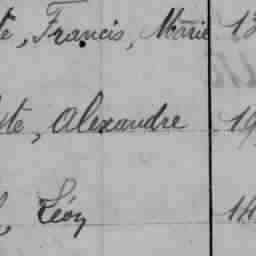 te, Francis, Marie 13
ste, Alexandre 19
, Léon 14